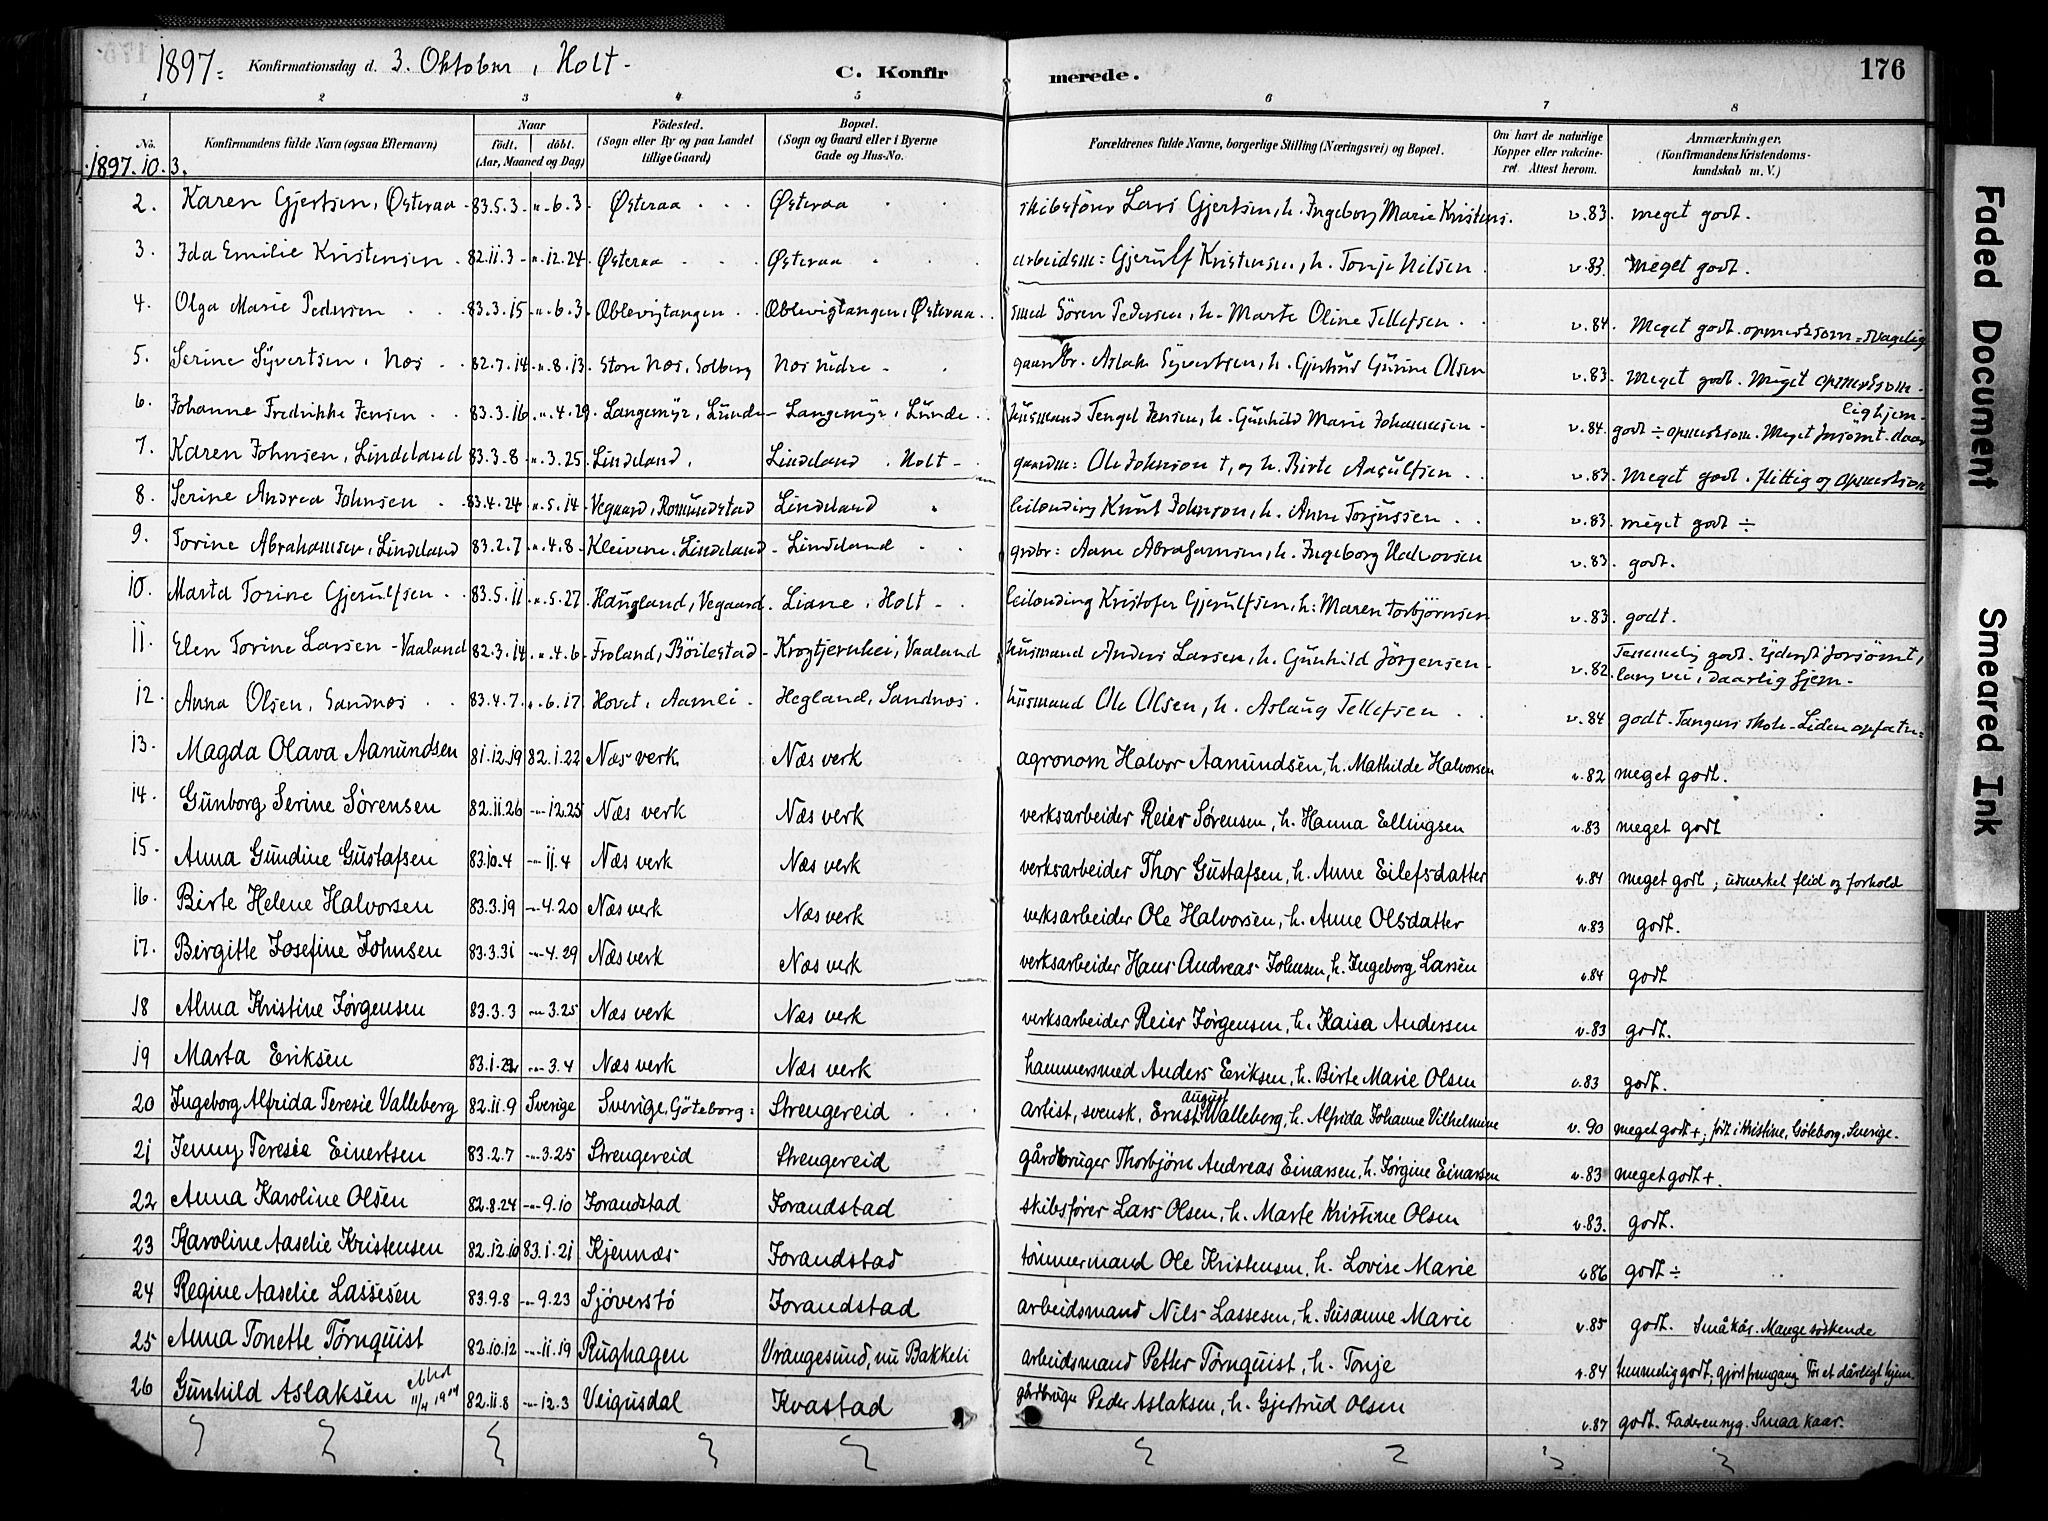 1897. Konfirmationsdag d. 3. Oktober, Holt. C. Konfirmerede. 176
1 2 3 4 5 6 7 8
No. Konfirmandens fulde Navn (ogsaa Efternavn) Naar født. døbt. (Aar, Maaned og Dag) Fødested. (Sogn eller By og paa Landet tillige Gaard) Bopæl. (Sogn og Gaard eller i Byerne Gade og Hus-No. Forældrenes fulde Navne, borgerlige Stilling (Næringsvei) og Bopæl. Om havt de naturlige Kopper eller vakcineret. Attest herom. Anmærkninger. (Konfirmandens Kristendomskundskab m. V.)
1897.10.3.
2. Karen Gjertsen, Østeraa 83.5.3 -"- 6.3 Østeraa Østeraa skibsfører Lars Gjertsen, h. Ingeborg Marie Kristens. v.83. meget godt.
3. Ida Emilie Kristensen 82.11.3 -"- 12.24 Østeraa Østeraa arbeidsm: Gjerulf Kristensen, h. Tonje Nilsen v.83. Meget godt.
4. Olga Marie Pedersen 83.3.15 -"- 6.3 Oblevigtangen Oblevigtangen, Østeraa smed Sören Pedersen, h. Marte Oline Tellefsen v.84. Meget godt. opmerksom = svagelig
5. Serine Syvertsen, Næs 82.7.14 -"- 8.13 Store Næs, Solberg Næs nedre gaardbr. Aslak Syvertsen, h. Gjertrud Gurine Olsen v.83. Meget godt. Meget opmerksom
6. Johanne Fredrikke Jensen 83.3.16 -"- 4.29 Langemyr, Lunde Langemyr, Lunde husmand Tengel Jensen, h. Gunhild Marie Johannesen v.84. godt ÷ opmerksom. Meget forsömt. daarlig hjem
7. Karen Johnsen, Lindeland 83.3.8 -"- 3.25 Lindeland, Lindeland, Holt gaardm: Ole Johnson †, og h. Birte Aasulfsen v.83. Meget godt. flittig og opmerksom
8. Serine Andrea Johnsen 83.4.24 -"- 5.14 Vegaard, Romundstad Lindeland leilending Knut Johnson, h. Anne Torjussen v.83. meget godt ÷
9. Torine Abrahamsen, Lindeland 83.2.7 -"- 4.8 Kleivene, Lindeland Lindeland grdbr: Aane Abrahamsen, h. Ingeborg Halvorsen v.83. godt.
10. Marta Torine Gjerulfsen 83.5.11 -"- 5.27 Haugland, Vegaard Liane, Holt leilending Kristofer Gjerulfsen, h: Maren Torbjörnsen v.83. godt.
11. Elen Torine Larsen - Vaaland 82.3.14 -"- 4.6 Froland, Böilestad Krogtjernhei, Vaaland husmand Anders Larsen, h. Gunhild Jörgensen v.82. Temmelig godt. Yderst forsömt, lang vei, daarlig hjem
12. Anna Olsen, Sandnæs 83.4.7 -"- 6.17 Hovet, Aamli Hegland, Sandnæs husmand Ole Olsen, h. Aslaug Tellefsen v.84 godt - Tangens skole - Liden opfatn:
13. Magda Olava Aanundsen 81.12.19 82.1.22 Næs verk Næs verk agronom Halvor Aanundsen, h. Mathilde Halvorsen v.82 meget godt.
14. Gunborg Serine Sörensen 82.11.26 -"- 12.25 Næs verk Næs verk verksarbeider Reier Sørensen, h. Hanna Ellingsen v.83 meget godt
15. Anna Gundine Gustafsen 83.10.4 -"- 11.4 Næs verk Næs verk verksarbeider Thor Gustafsen, h. Anne Eilefsdatter v.84 meget godt; udmerket flid og forhold
16. Birte Helene Halvorsen 83.3.19 -"- 4.20 Næs verk Næs verk verksarbeider Ole Halvorsen, h. Anne Olsdatter v.83 godt.
17. Birgitte Josefine Johnsen 83.3.31 -"- 4.29 Næs verk Næs verk verksarbeider Hans Andreas Johnsen, h. Ingeborg Larsen v.84 godt
18 Alma Kristine Jørgensen 83.3.3 -"- 3.25 Næs verk Næs verk verksarbeider Reier Jørgensen, h. Kaisa Andersen v.83 godt.
19 Marta Eriksen 83.1.22 -"- 3.4 Næs verk Næs verk hammersmed Anders Eriksen, h. Birte Marie Olsen v.83 godt.
20 Ingeborg Alfrida Teresie Valleberg 82.11.9 Sverige Sverige, Göteborg: Strengereid artist, svensk, Ernst August Walleberg, h. Alfrida Johanne Vilhelmine v.90 meget godt +; födt i Kristine, Göteborg, Sverige.
21 Jenny Teresie Einertsen 83.2.7 -"- 3.25 Strengereid Strengereid gårdbruger Thorbjörn Andreas Einarsen, h. Jørgine Einarsen v.83 meget godt +.
22 Anna Karoline Olsen 82.8.24 -"- 9.10 Jorandstad Jorandstad skibsfører Lars Olsen, h. Marte Kristine Olsen v.83. godt.
23 Karoline Aaselie Kristensen 82.12.10 83.1.21 Kjennæs Jorandstad tömmermand Ole Kristensen, h. Lovise Marie v.86 godt ÷
24 Regine Aaselie Lassesen 83.9.8 -"- 9.23 Sjöverstö Jorandstad arbeidsmand Nils Lassesen, h. Susanne Marie v.85 godt. Små kår. Mange söskende
25 Anna Tonette Tørnquist 82.10.12 -"- 11.19 Rughagen Vrangesund, nu Bakkeli arbeidsmand Petter Tørnquist, h. Tonje v.84 temmelig godt. gjort fremgang för et dårligt hjem.
26 Gunhild Aslaksen 11/4 1904 82.11.8 -"- 12.3 Veigusdal Kvastad gårdbruger Peder Aslaksen, h. Gjertrud Olsen v.87 godt. Faderen syg. Smaa kaar.
Faded Document
Smeared Ink